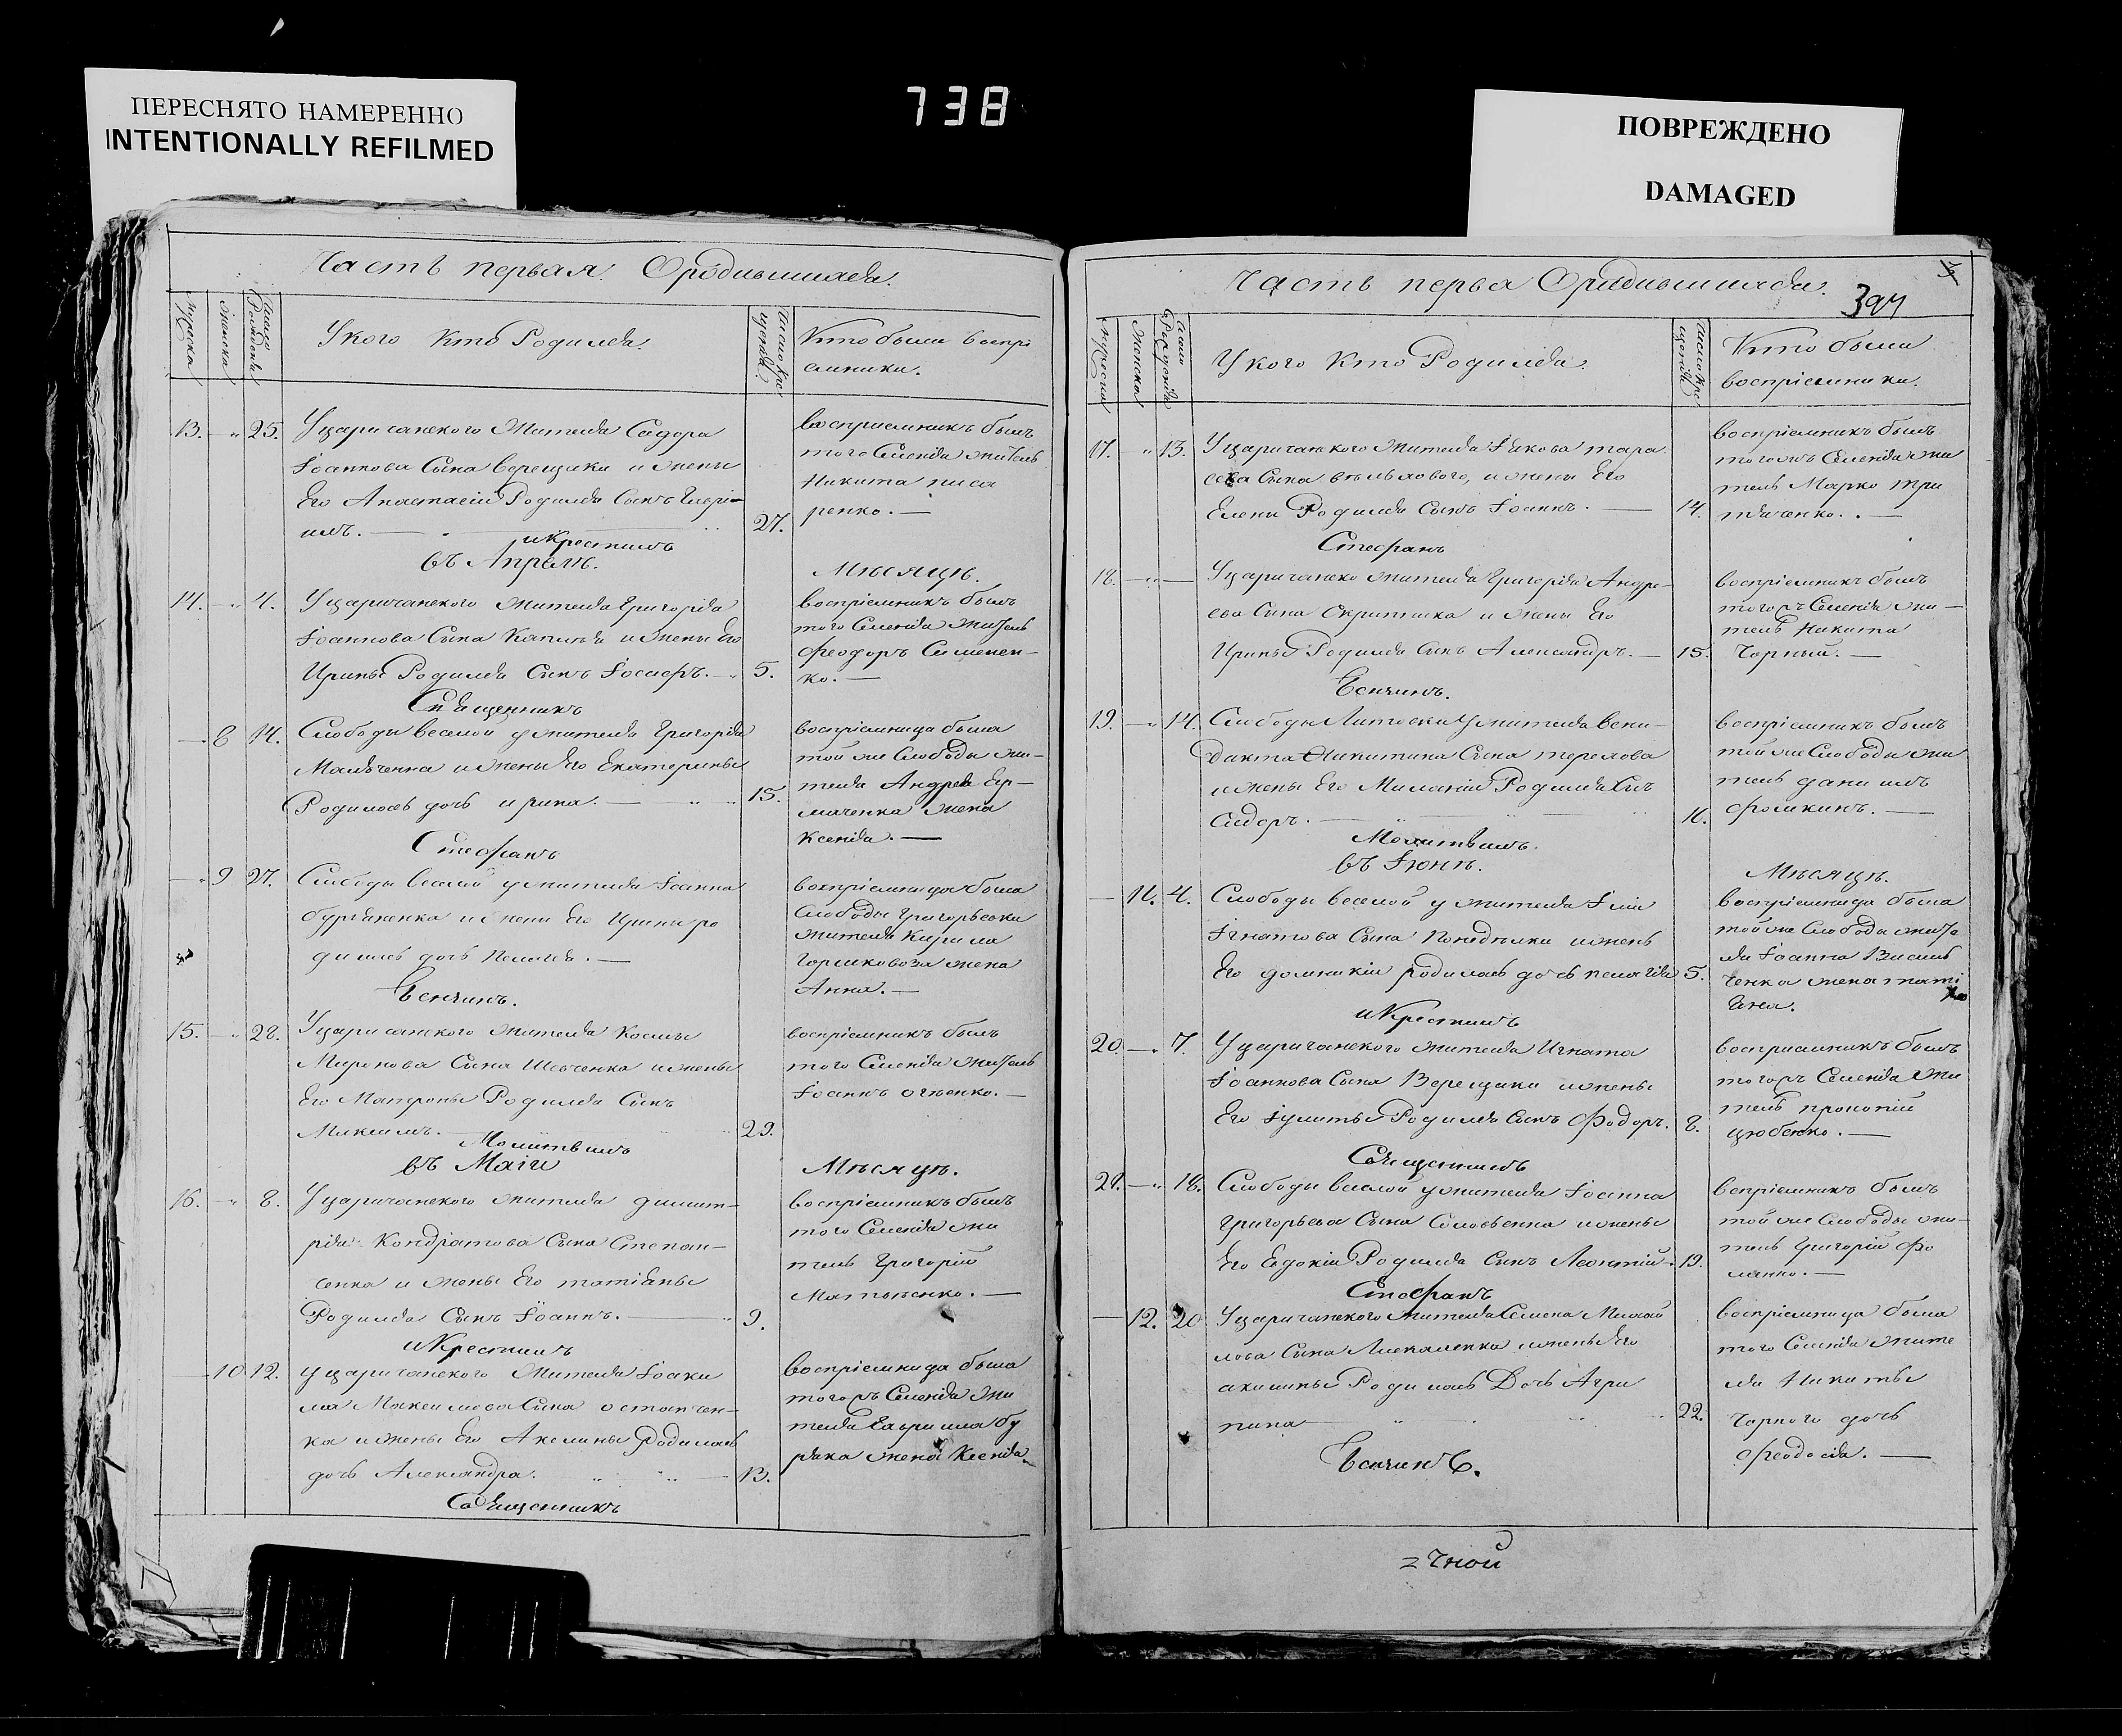 ПЕРЕСНЯТО НАМЕРЕННО
INTENTIONALLY REFILMED
738
ПОВРЕЖДЕНО
DAMAGED
Часть первая Ородившихся.
мужеска
женска
число Рождения
Укого кто Родился.
число кре
щения.
Кто были воспрi
емники.
13. 25. Уцаричанского жителя Сидора
Iоаннова Сына Верещаки и жены
Его Анастасiи Родился Сынъ Гаврi-
илъ. 27.
воспрiемникъ былъ
того Селенiя житель
Никита писа
ренко.
икрестилъ
въ Апрелѣ. Мѣсяцѣ.
14. 4. Уцаричанского жителя Григорiя
Iоаннова Сына и жены Его
Ирины Родился Сынъ Iосифъ. 5.
воспрiемникъ былъ
того Селенiя житель
Феодоръ Симонен-
ко.
Священникъ
8 14. Слободы веселой ужителя Григорiя
и жены Его Екатерины
Родилась дочь ирина. 15.
воспрiемница была
той же Слободы жи-
теля Андрея Ер-
маченка жена
Ксенiя.
Стефанъ
9 27. Слободы веселой ужителя Iоанна
и жени Его Ирины ро
дилась дочь
воспрiемница была
Слободы Григорьевки
жителя Кирила
Горшковоза жена
Анна.
Бенчинъ.
15. 28. Уцаричанского жителя Космы
Миронова Сына Шевченка ижены
Его Матроны Родился Сынъ
Максимъ. 29.
воспрiемникъ былъ
того Селенiя житель
Iоаннъ огiенко.
Молитвилъ
въ Маiи Мѣсяцѣ.
16. 8. Уцаричанского жителя димит-
рiя Кондратова Сына Степан-
сенка и жены Его татiаны
Родился Сынъ Iоаннъ. 9.
воспрiемникъ былъ
того Селенiя жи
тель Григорiй
Матвѣенко.
икрестилъ
10 12. уцаричанского жителя Iоаки
ма Максимова Сына остапчен-
ка ижены Его Акелины Родилась
дочь Александра. 13.
воспрiемница была
тогожъ Селенiя жи
теля Гаврiила бу
ряка жена Ксенiя.
Священникъ
Часть перва Ородившихся.
394
мужеска
женска
число Рожденiя
Укого кто Родился.
число кре
щенiя
Кто были
воспрiемники.
17. 13. Уцаричанского жителя Якова тара
Сына вѣльхового, и жены Его
Елены Родился Сынъ Iоаннъ. 14.
воспрiемникъ былъ
тогожъ Селенiя жи
тель Марко три
тяченко.
Стефанъ
18. Уцаричанско жителя Григорiя Андре-
ева Сына Скрипника и жены Его
Ирины Родился Сынъ Александръ. 15.
воспрiемникъ былъ
тогожъ Селенiя жи-
тель Никита
Чорный.
Бенчинъ.
19. 14. Слободы Литовки ужителя вени-
дикта Никитина Сына терехова
ижены Его Миланiи Родился Сынъ
Сидоръ. 16.
воспрiемникъ былъ
той же Слободы жи
тель данiилъ
фомкинъ.
Молитвилъ.
въ Iюнѣ. Мѣсяцѣ.
11. 4. Слободы веселой ужителя Iлiи
Iгнатова Сына Понедѣлки ижены
Его домникiи родилась дочь пелагiя 5.
воспрiемница была
той же Слободы жите
ля Iоанна
ченка жена татi
яна.
икрестилъ
20. 7. Уцаричанского жителя Игната
Iоаннова Сына Верещаки ижены
Его Iулиты Родился Сынъ Феодоръ. 8.
воспрiемникъ былъ
тогожъ Селенiя жи
тель прокопiй
цюбенко.
Священникъ
21. 18. Слободы веселой ужителя Iоанна
Григорьева Сына Соловьенка ижены
Его Евдокiи Родился Сынъ Леонтiй. 19.
воспрiемникъ былъ
той же Слободы жи-
тель Григорiй Фо
менко.
Стефанъ
12. 20. Уцаричанского жителя Семена Михай
лова Сына ижены Его
акилины Родилась Дочь Агри
пина 22.
воспрiемница была
того Селенiя жите
ля Никиты
Чорного дочь
феодосiя.
Бенчинъ.